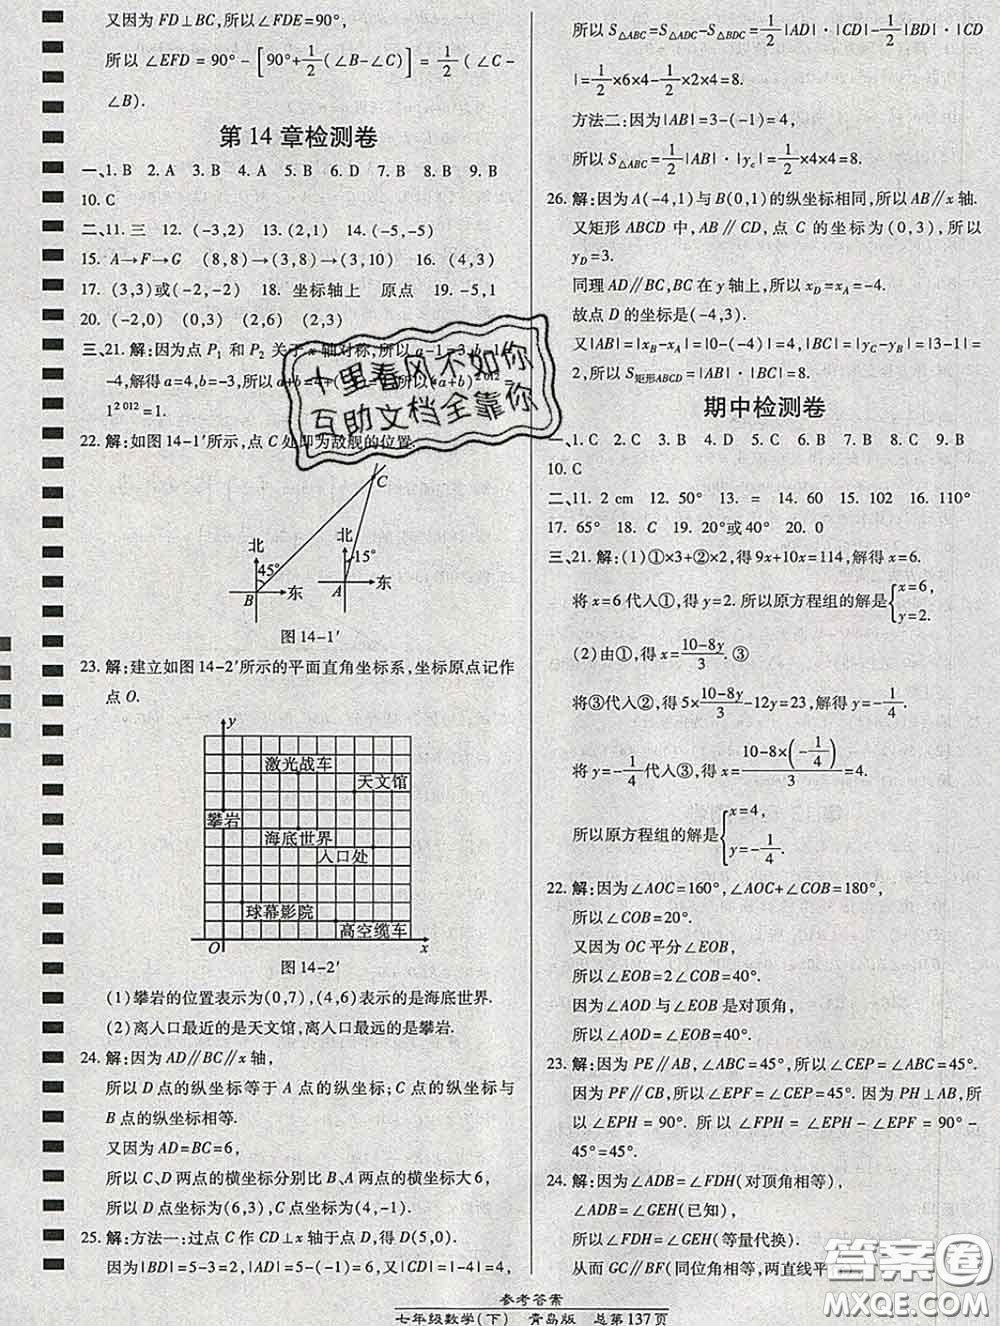 又因为 FD⊥BC,所以∠FDE=90°,
所以∠EFD=90°-[90°+1/2(∠B-∠C)]=1/2(∠C-
∠B).
第 14 章检测卷
一、1. B 2. A 3. B 4. A 5. B 6. D 7. B 8. B 9. B
10. C
二、11. 三 12. (-3,2) 13. (2,1) 14. (-5,-5)
15. A→F→G (8,8)→(3,8)→(3,4) 16. (4,3)
17. (3,3)或(-2,-2) 18. 坐标轴上 原点 19. -5,1
20. (-2,0) (0,3) (2,6) (2,3)
三、21. 解:因为点 P₁ 和 P₂ 关于 x 轴对称,所以 a-1=3,b-1=
-4,解得 a=4,b=-3,所以 a+b=4+(-3)=1,所以(a+b)²⁰¹²=
1²⁰¹²=1.
22. 解:如图 14-1′所示,点 C 处即为敌舰的位置.
C
北 北
45° 15°
B 东 A 东
图 14-1′
23. 解:建立如图 14-2′所示的平面直角坐标系,坐标原点记作
点 O.
y
激光战车
天文馆
攀岩
海底世界
入口处
球幕影院
高空缆车
O x
图 14-2′
(1)攀岩的位置表示为(0,7),(4,6)表示的是海底世界.
(2)离入口最近的是天文馆,离入口最远的是攀岩.
24. 解:因为 AD∥BC∥x 轴,
所以 D 点的纵坐标等于 A 点的纵坐标;C 点的纵坐标与
B 点的纵坐标相等.
又因为 AD=BC=6,
所以 C、D 两点的横坐标分别比 B、A 两点的横坐标大 6,
所以 D 点坐标为(6,3),C 点坐标为(4,-1).
25. 解:方法一:过点 C 作 CD⊥x 轴于点 D,得 D(5,0).
因为|BD|=5-3=2,|AD|=5-(-1)=6,又|CD|=|-4|=4,
所以 S△ABC=S△ADC-S△BDC=1/2|AD|·|CD|-1/2|BD|·|CD
|=1/2×6×4-1/2×2×4=8.
方法二:因为|AB|=3-(-1)=4,
所以 S△ABC=1/2|AB|·|y_c|=1/2×4×4=8.
26. 解:因为 A(-4,1)与 B(0,1)的纵坐标相同,所以 AB∥x 轴.
又矩形 ABCD 中,AB∥CD,点 C 的坐标为(0,3),所以
y_D=3.
同理 AD∥BC,BC 在 y 轴上,所以 x_D=x_A=-4.
故点 D 的坐标是(-4,3).
又|AB|=|x_B-x_A|=|0-(-4)|=4,|BC|=|y_C-y_B|=|3-1|=
2,所以 S矩形ABCD=|AB|·|BC|=8.
期中检测卷
一、1. C 2. C 3. B 4. D 5. C 6. C 7. D 8. C 9. B
10. C
二、11. 2 cm 12. 50° 13. = 14. 25 15. 102 16. 110°
17. 65° 18. C 19. 20°或 40° 20. 0
三、21. 解:(1)①×3+②×2,得 9x+10x=114,解得 x=6.
将 x=6 代入①,得 y=2. 所以原方程组的解是{x=6, y=2.
(2)由①,得 x=(10-8y)/3. ③
将③代入②,得 5×(10-8y)/3-12y=23,解得 y=-1/4.
将 y=-1/4代入③,得 x=(10-8×(-1/4))/3=4.
所以原方程组的解是{x=4, y=-1/4.
22. 解:因为∠AOC=160°,∠AOC+∠COB=180°,
所以∠COB=20°.
又因为 OC 平分∠EOB,
所以∠EOB=2∠COB=40°.
因为∠AOD 与∠EOB 是对顶角,
所以∠AOD=∠EOB=40°.
23. 解:因为 PE∥AB,∠ABC=45°,所以∠CEP=∠ABC=45°.
因为 PF∥CB,所以∠EPF=∠CEP=45°. 因为 PH⊥AB,所
以∠EPH=90°. 所以∠FPH=∠EPH-∠EPF=90°-
45°=45°.
24. 解:因为∠ADB=∠FDH(对顶角相等),
∠ADB=∠GEH(已知),
所以∠FDH=∠GEH(等量代换).
从而 GC∥BF(同位角相等,两直线平行).
十里春风不如你
互助文档全靠你
答案圈
MXQE.COM
参考答案
七年级数学(下) 青岛版 总第 137 页